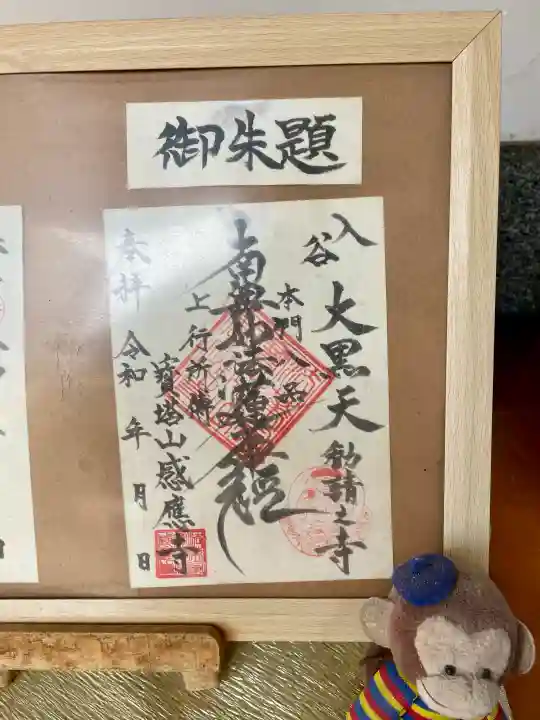 御朱題
入谷
大黒天勧請之寺
本門八品
南無妙法蓮華経
上行所傳
寳塔山感應寺
奉拝
令和 年 月 日